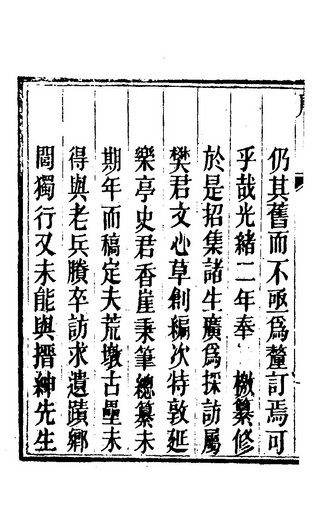 仍其舊而不亟爲釐訂焉可
乎哉光緒二年奉 檄纂修
於是招集諸生廣爲採訪屬
樊君文心草創編次特敦延
樂亭史君香崖秉筆總纂未
期年而稿定夫荒墩古壘未
得與老兵賸卒訪求遺蹟鄉
閭獨行又未能與搢紳先生